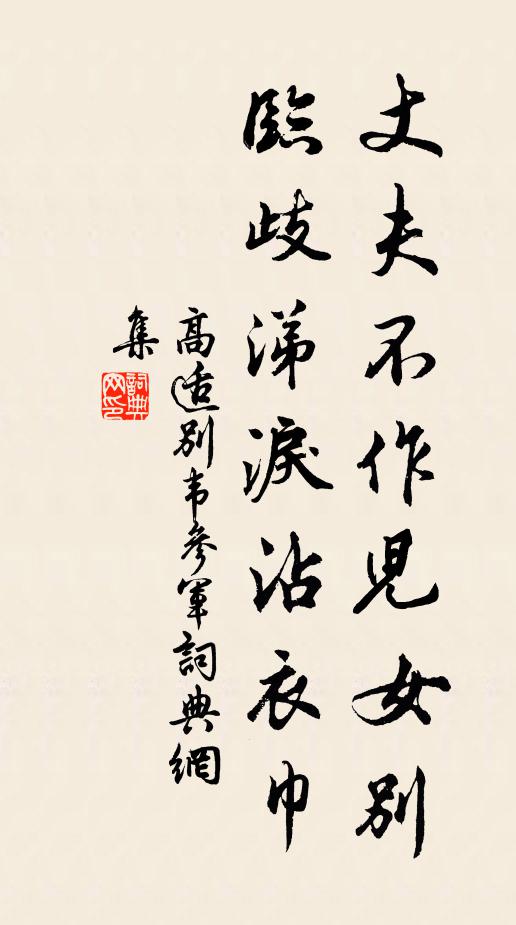 丈夫不作児女別
臨歧涕淚沾衣巾
高适別韦參軍詞典網
集
詞典
网印